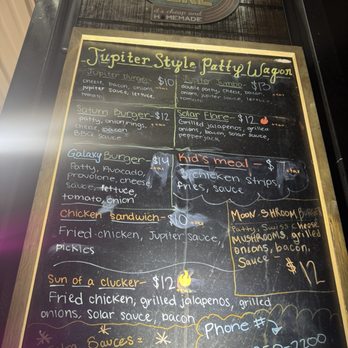 it's cheap and
HOMEMADE
Jupiter Style Patty Wagon
Jupiter Burger - $10
cheese, bacon, onions
jupiter sauce, lettuce,
tomato
Jupiter
$13
double patty, cheese, bacon,
onions, jupiter sauce, lettuce,
tomato
Saturn Burger - $12
patty, onion rings,
cheese, bacon
BBQ sauce
Solar Flare - $12
Grilled jalapenos, grilled
onions, bacon, solar sauce,
pepperjack
Galaxy Burger - $14
Patty, Avocado,
provolone, cheese
sauce, lettuce,
tomato, onion
Kid's meal - $
chicken strips,
fries, sauce
Chicken Sandwich - $10
Fried chicken, Jupiter sauce,
pickles
Moon-Shroom Burger
Patty, Swiss cheese
MUSHROOMS, grilled
onions, bacon,
Sauce - $12
Sun of a clucker - $12
Fried chicken, grilled jalapenos, grilled
onions, solar sauce, bacon
Sauces =
Phone #
-2200